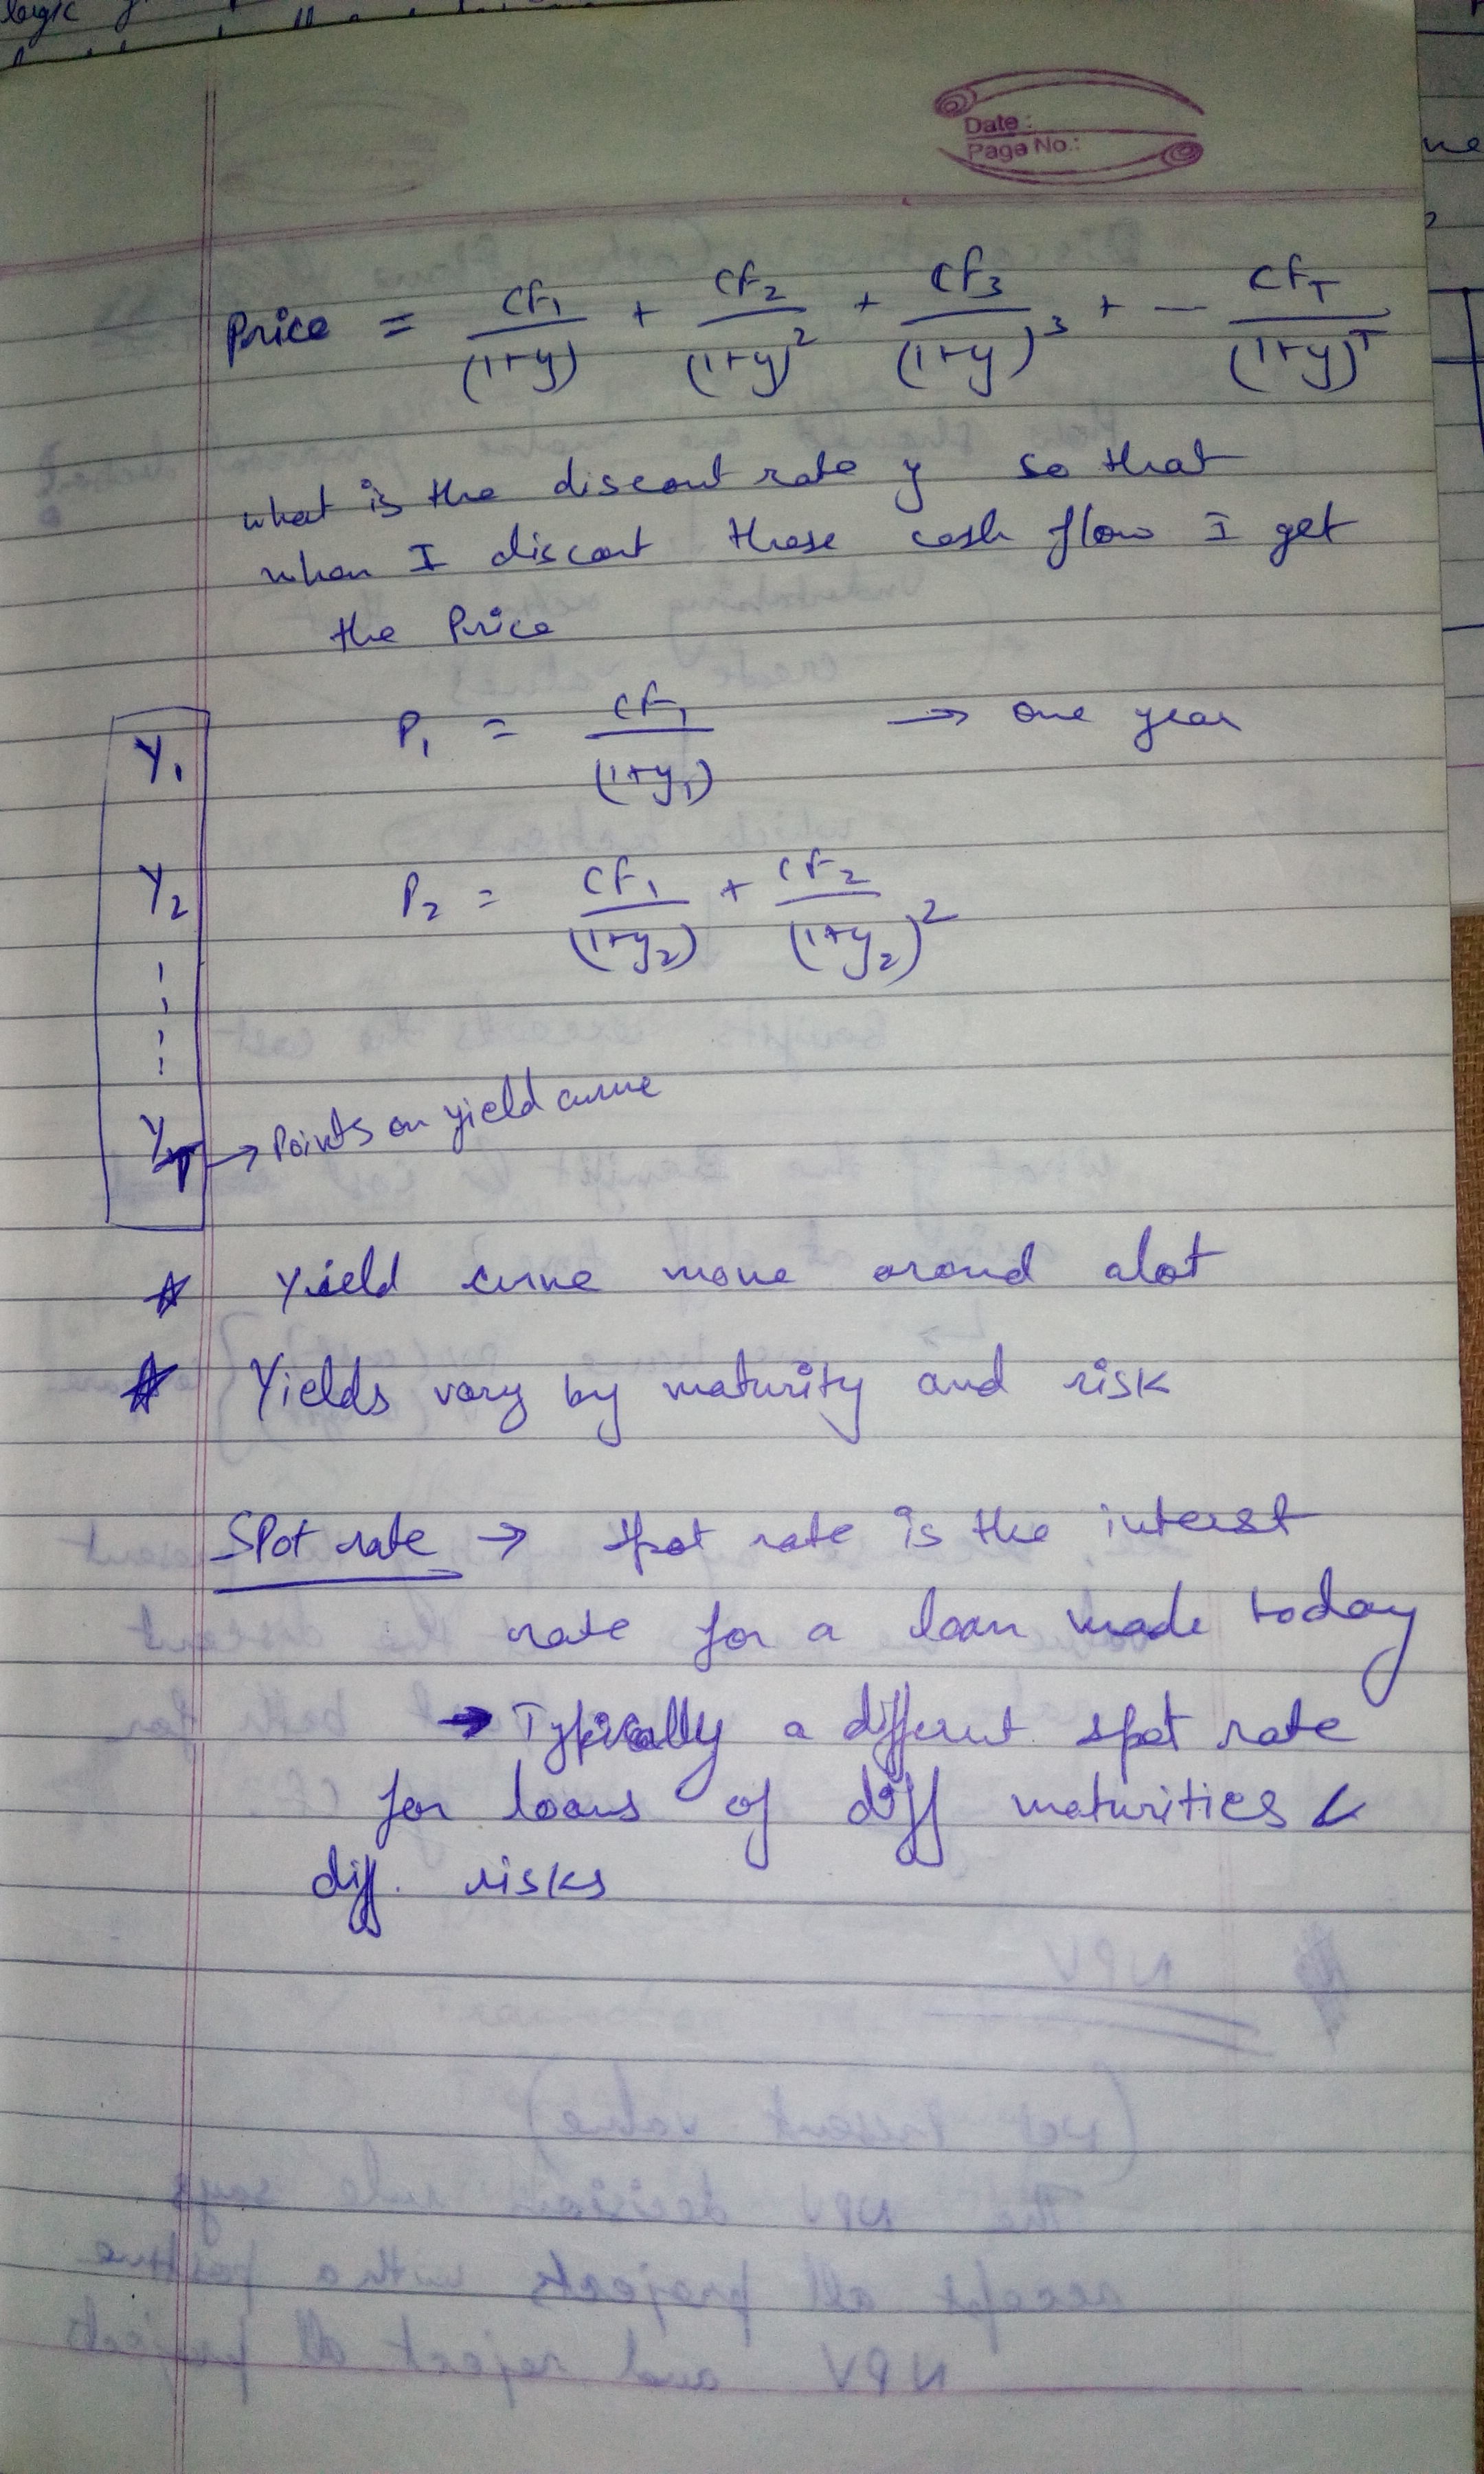 logic
Date :
Page No.:
Price = CF₁/(1+y) + CF₂/(1+y)² + CF₃/(1+y)³ + -- CF_T/(1+y)^T
what is the discout rate y so that
when I discout these cash flow I get
the Price
Y₁ P₁ = CF₁/(1+y₁) → one year
Y₂ P₂ = CF₁/(1+y₂) + CF₂/(1+y₂)²
Y_T → Points on yield curve
☆ Yield curve move around alot
☆ Yields vary by maturity and risk
Spot rate → spot rate is the interest
rate for a loan made today
→ Typically a different spot rate
for loans of diff maturities &
diff. risks